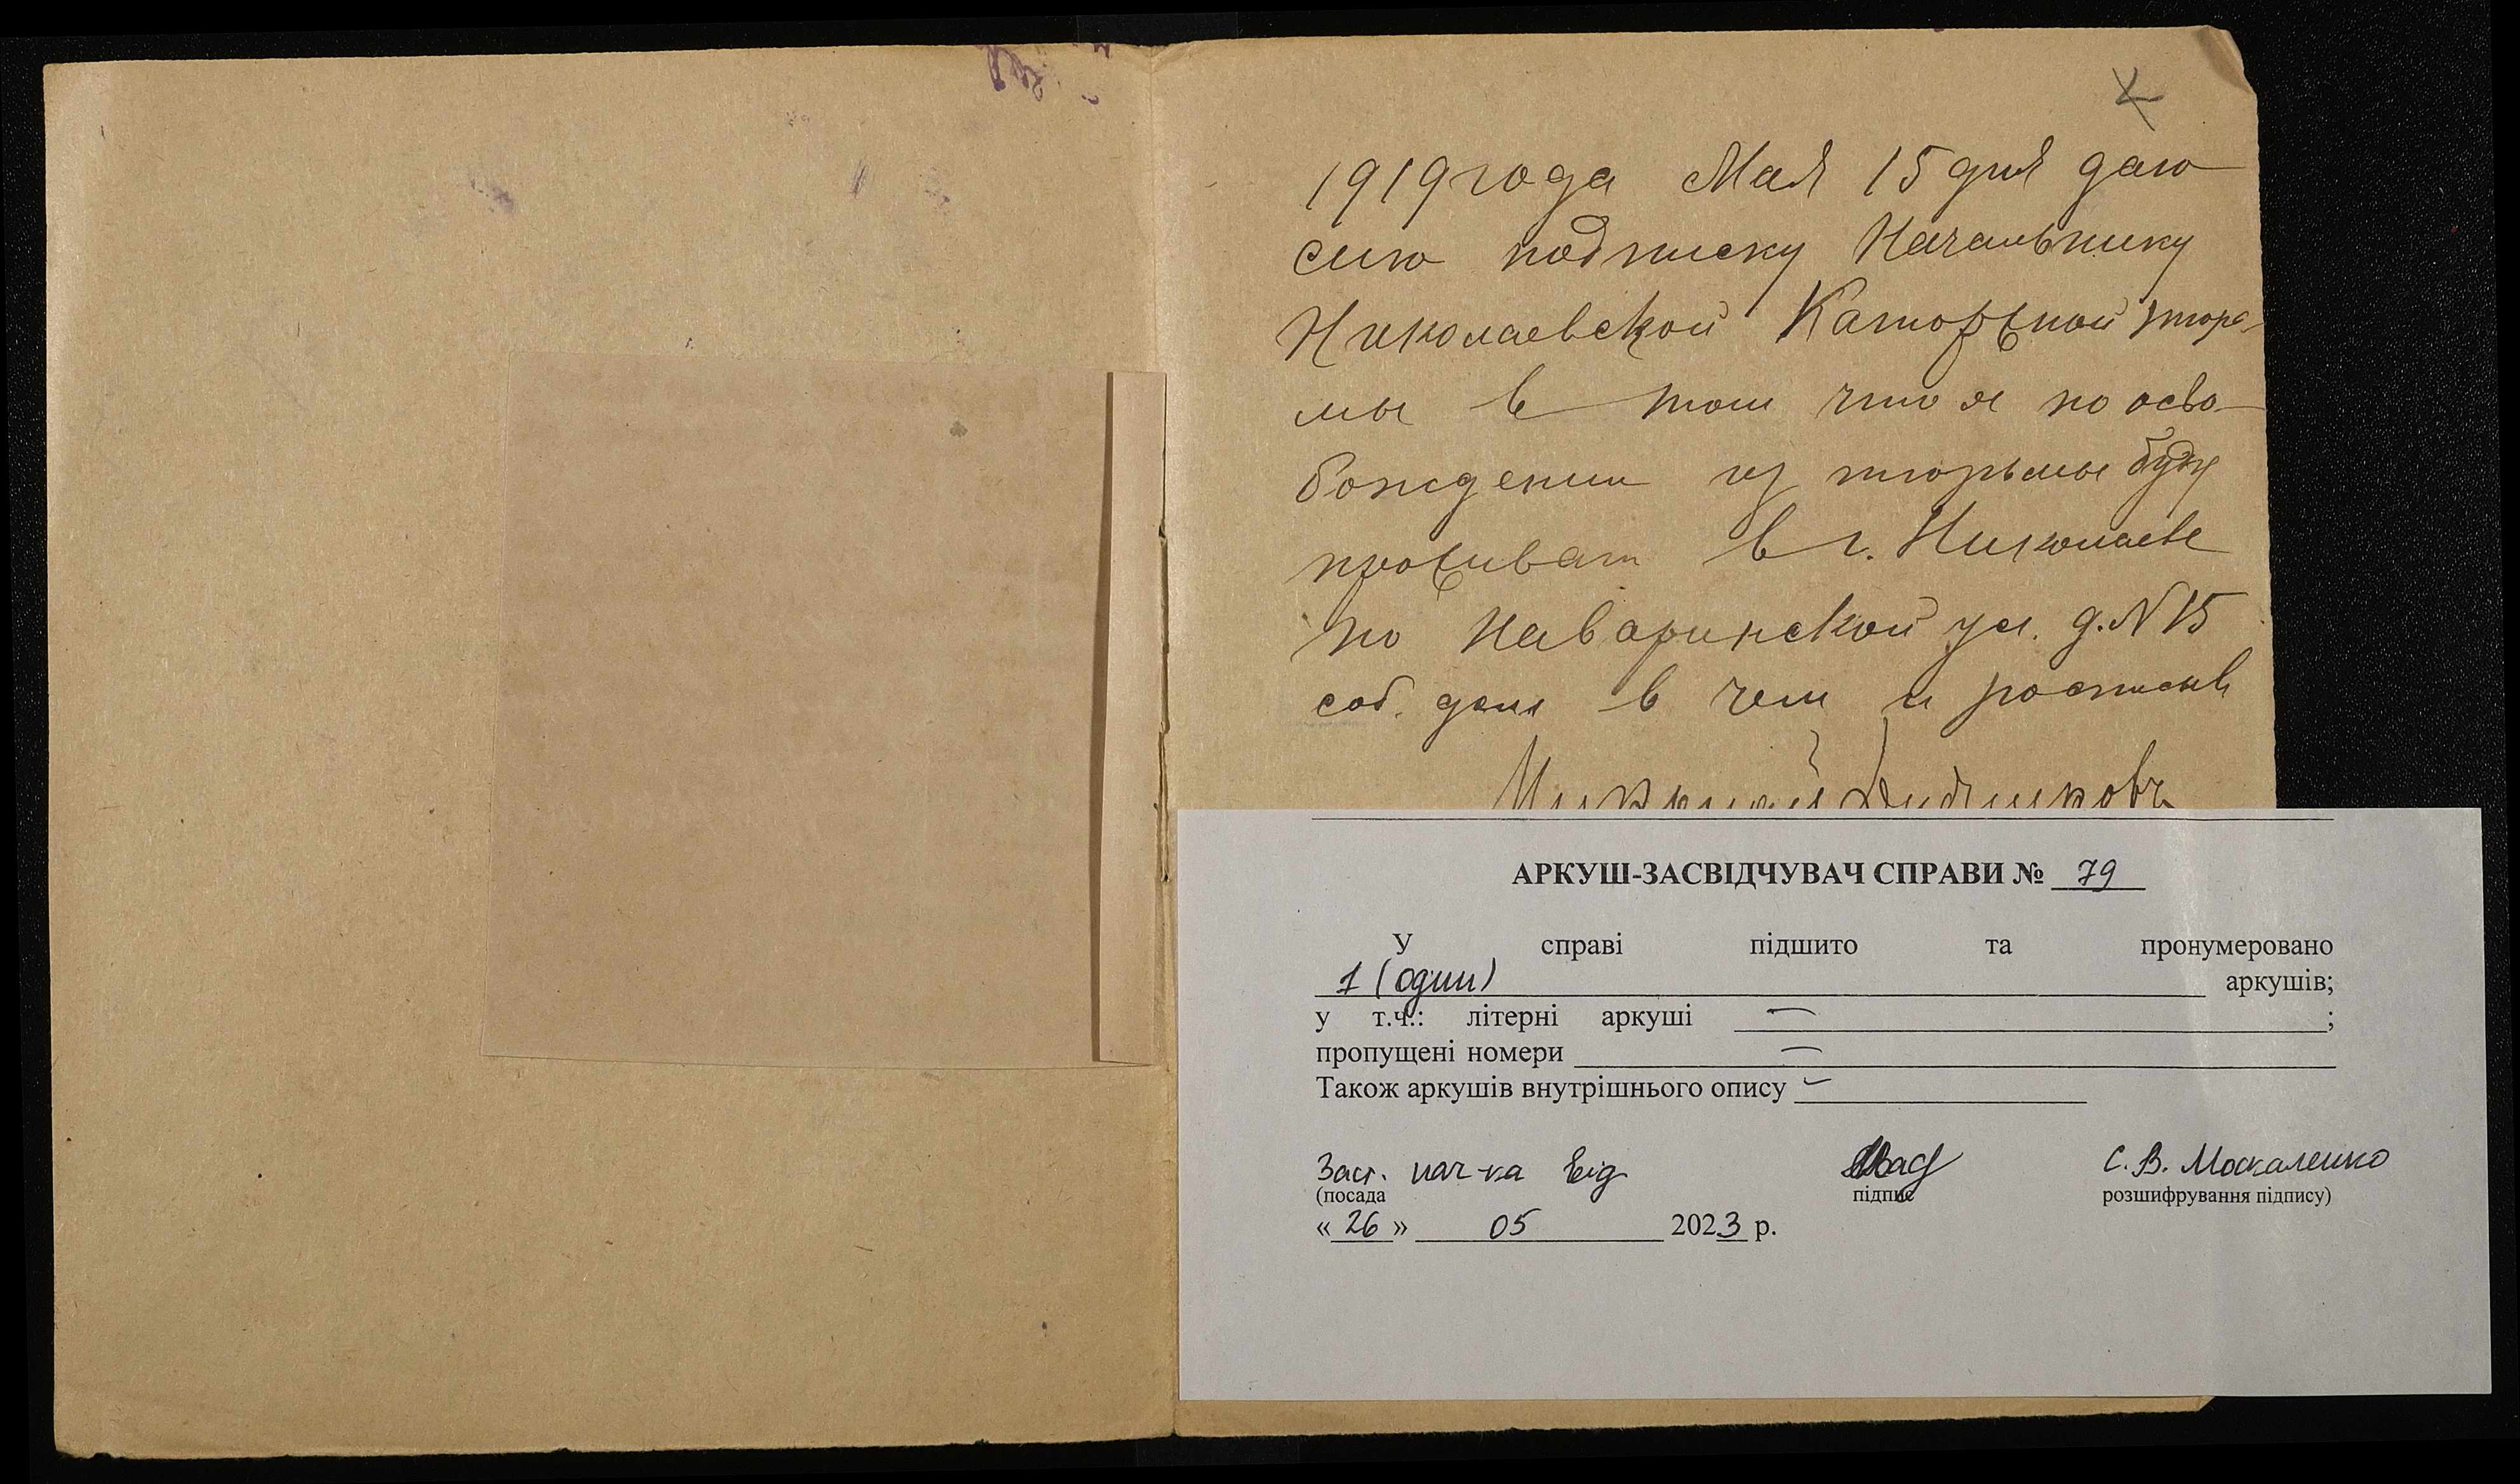 1919 года Мая 15 дня даю
сию подписку Начальнику
Николаевской Каторжной тюрь-
мы в том что я по осво-
бождении из тюрьмы буду
проживат в г. Николаеве
по Наваринской ул. д. N 15
соб. дом в чем и росписыв
АРКУШ-ЗАСВІДЧУВАЧ СПРАВИ № 79
У справі підшито та пронумеровано
1 (один) аркушів;
у т.ч.: літерні аркуші — ;
пропущені номери —
Також аркушів внутрішнього опису –
Заст. нач-ка від С. В. Москаленко
(посада підпис розшифрування підпису)
« 26 » 05 2023 р.